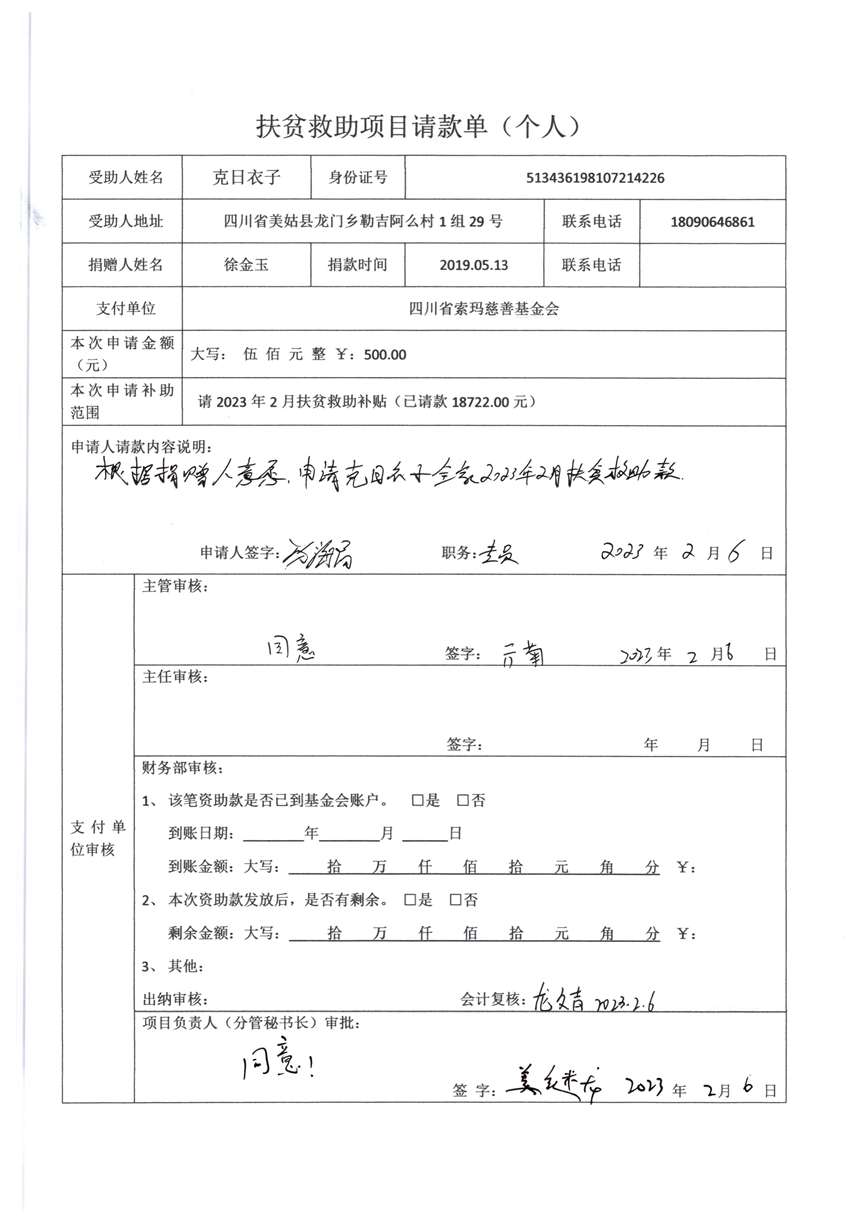 扶贫救助项目请款单（个人）
受助人姓名 克日衣子 身份证号 513436198107214226
受助人地址 四川省美姑县龙门乡勒吉阿么村 1 组 29 号 联系电话 18090646861
捐赠人姓名 徐金玉 捐款时间 2019.05.13 联系电话
支付单位 四川省索玛慈善基金会
本次申请金额
（元）
大写： 伍 佰 元 整 ￥：500.00
本次申请补助
范围
请 2023 年 2 月扶贫救助补贴（已请款 18722.00 元）
申请人请款内容说明：
根据捐赠人意愿，申请克日衣子全家2023年2月扶贫救助款.
申请人签字： 职务： 2023 年 2 月 6 日
支付单
位审核
主管审核：
同意 签字： 2023年 2 月6 日
主任审核：
签字： 年 月 日
财务部审核：
1、 该笔资助款是否已到基金会账户。 □是 □否
到账日期：________年________月 ______日
到账金额：大写： 拾 万 仟 佰 拾 元 角 分 ￥：
2、 本次资助款发放后，是否有剩余。 □是 □否
剩余金额：大写： 拾 万 仟 佰 拾 元 角 分 ￥：
3、 其他：
出纳审核： 会计复核： 2023.2.6
项目负责人（分管秘书长）审批：
同意！
签 字： 2023 年 2月 6 日